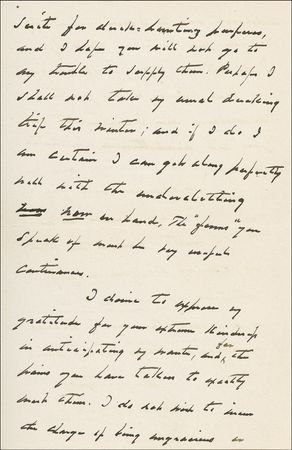 Suits for duck-hunting purposes,
and I hope you will not go to
any trouble to supply them. Perhaps I
shall not take my usual ducking
trip this winter; and if I do I
am certain I can get along perfectly
well with the underclothing
now on hand, The "forms" you
speak of must be very useful
contrivances.
I desire to express my
gratitude for your extreme kindness
in anticipating my wants, and for the
pains you have taken to exactly
meet them. I do not wish to incur
the charge of being ungracious or